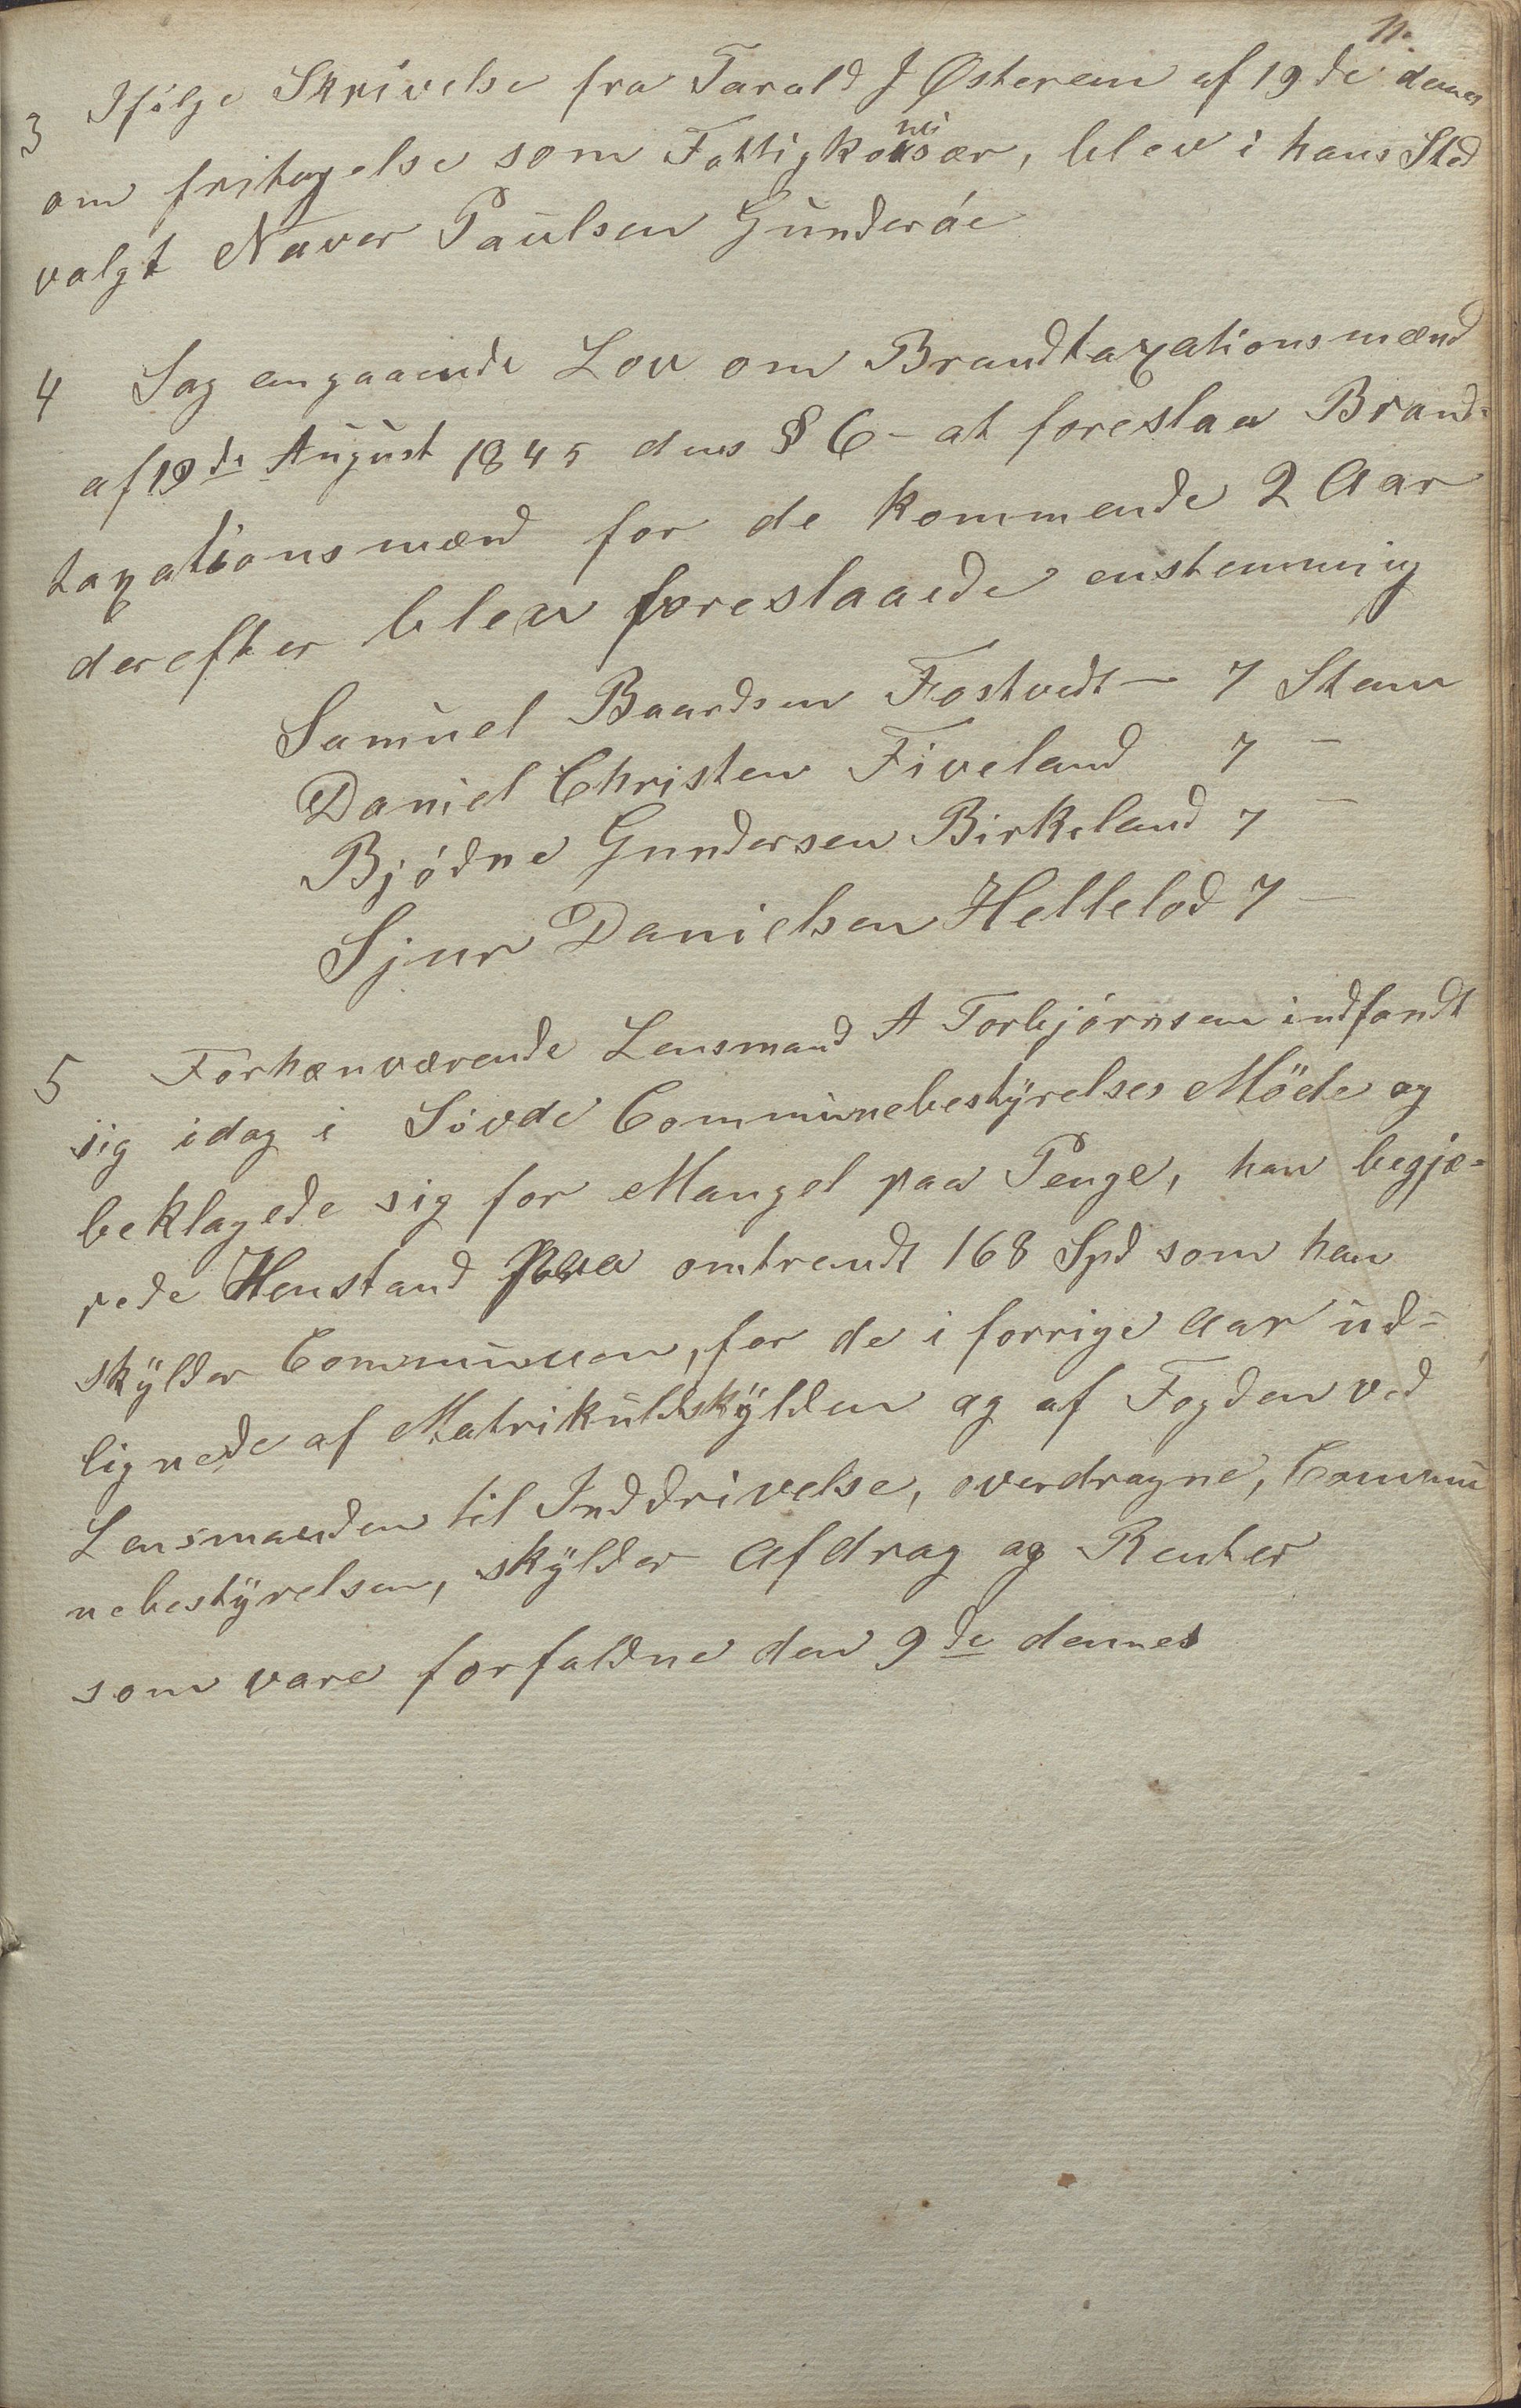 11.
3 Ifölge Skrivelse fra Tarald J Østerem af 19de dennes
om fritagelse som Fattigkomisær, blev i hans Sted
valgt Naver Paulsen Gunderöe
4 Sag angaaende Lov om Brandtaxationsmænd
af 19de August 1845 dens § 6 - at foreslaa Brand-
taxationsmænd for de kommende 2 Aar
derefter blev foreslaaede enstemmig
Samuel Baardsen Fostvedt - 7 Stem
Daniel Christen Fiveland 7 -
Bjödne Gundersen Birkeland 7 -
Sjur Danielsen Hellelod 7 -
5 Forhenværende Lensmand A Torbjörnsen indfandt
sig idag i Søvde Communebestyrelses Möde og
beklagede sig for Mangel paa Penge, han begjæ-
rede Henstand paa omtrendt 168 Spd som han
skylder Communen, for de i forrige Aar ud-
lignede af Matrikuldskylden og af Fogden ved
Lensmanden til Inddrivelse, overdragne, Commu
nebestyrelsen, skylder Afdrag og Renter
som vare forfaldne den 9de dennes